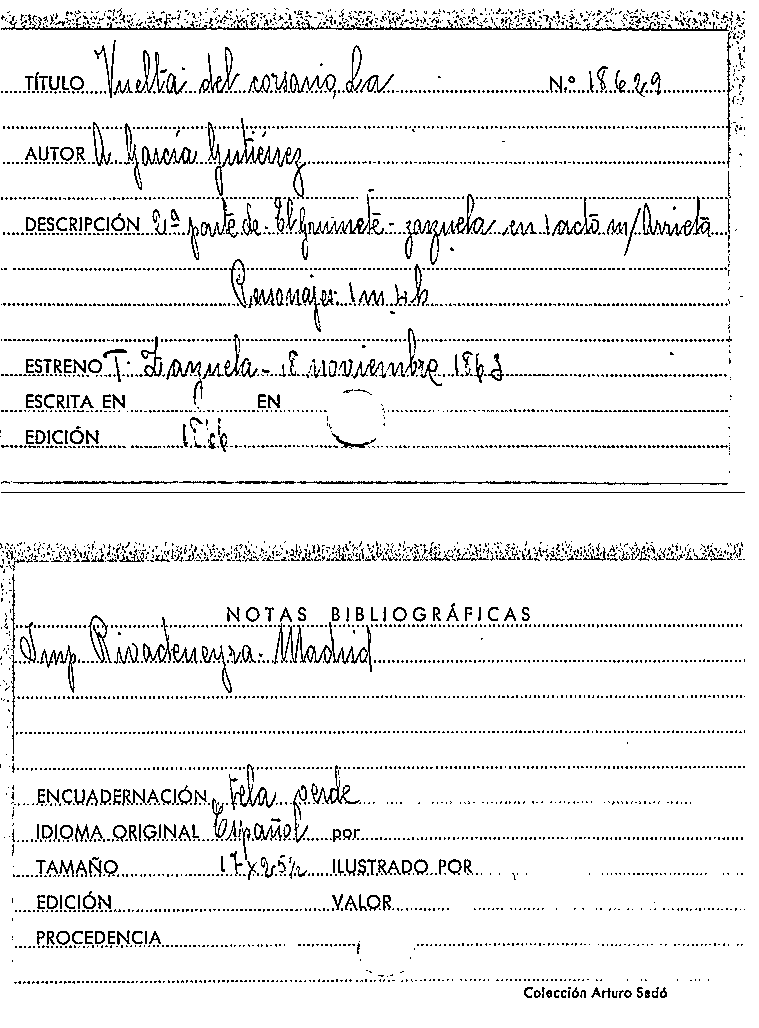 TÍTULO Vuelta del corsario, La N.º 18629
AUTOR A. García Gutiérrez
DESCRIPCIÓN 2ª parte de - El Grumete - zarzuela en 1 acto m/ Arrieta
Personajes: 1 m. 4 h
ESTRENO T. Zarzuela - 18 noviembre 1863
ESCRITA EN EN
EDICIÓN
NOTAS BIBLIOGRÁFICAS
Imp. Rivadeneyra. Madrid
ENCUADERNACIÓN tela verde
IDIOMA ORIGINAL Español por
TAMAÑO 17 x 25½ ILUSTRADO POR
EDICIÓN VALOR
PROCEDENCIA
Colección Arturo Sedó